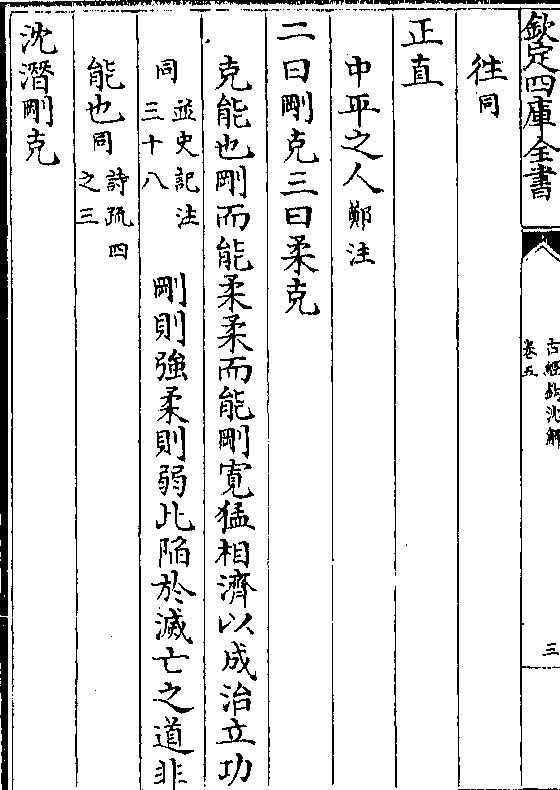 欽定四庫全書
卷五
三
徃同
正直
中平之人鄭注
二曰剛克三曰柔克
克能也剛而能柔柔而能剛寛猛相濟以成治立功
同並史記注三十八 剛則強柔則弱此陷於滅亡之道非
能也同詩疏四之三
沈潛剛克